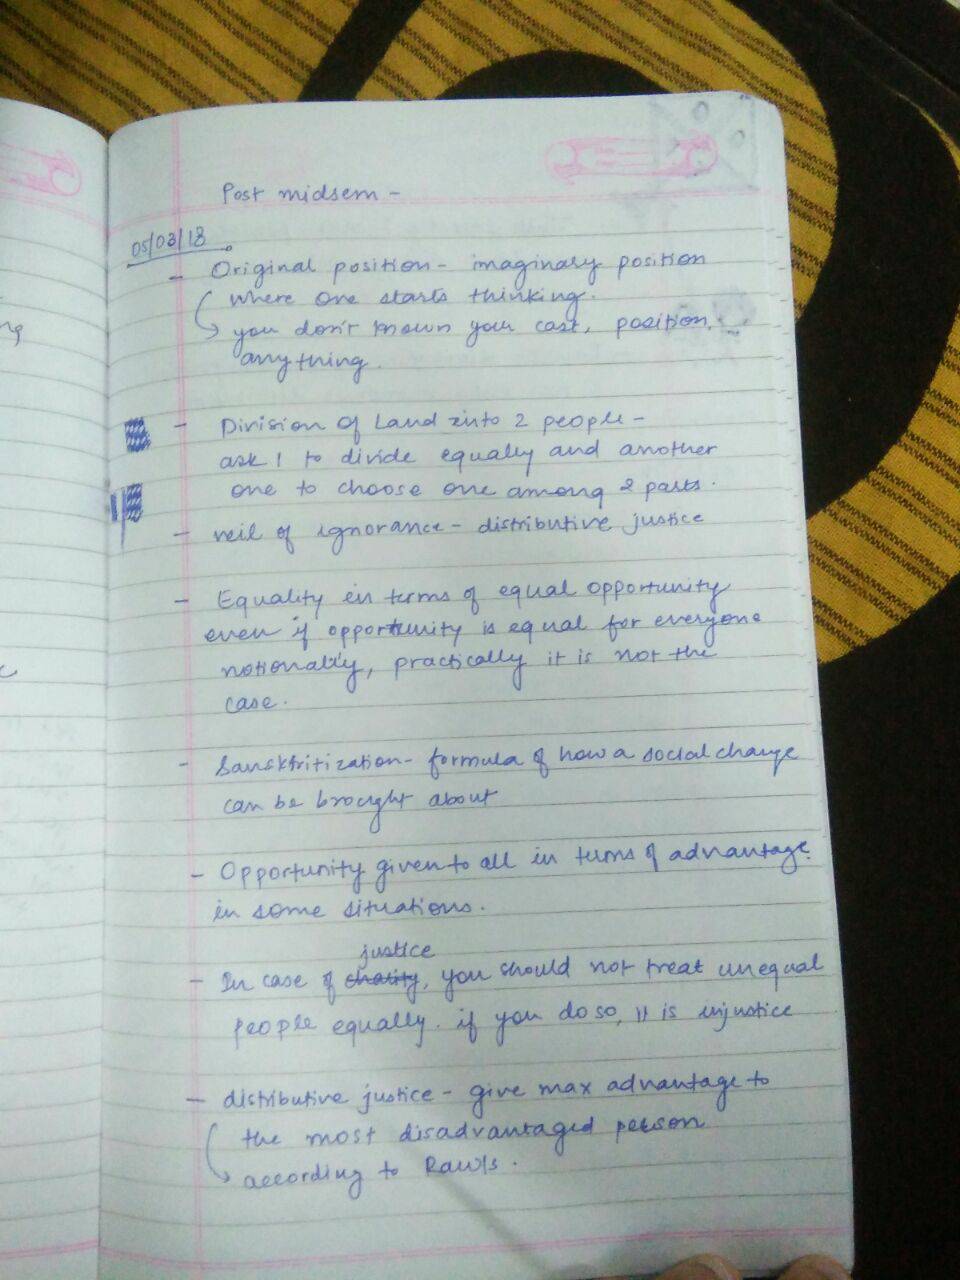 Post midsem -
05/03/18
- Original position - imaginary position
where one starts thinking.
you don't known your cast, position,
anything.
- Division of Land into 2 people -
ask 1 to divide equally and another
one to choose one among 2 parts.
- veil of ignorance - distributive justice
- Equality in terms of equal opportunity
even if opportunity is equal for everyone
notionally, practically it is not the
case.
- Sansktritization - formula of how a social change
can be brought about
- Opportunity given to all in terms of advantage
in some situations.
justice
- In case of charity, you should not treat unequal
people equally. if you do so, it is injustice
- distributive justice - give max advantage to
the most disadvantaged person
according to Rawls.